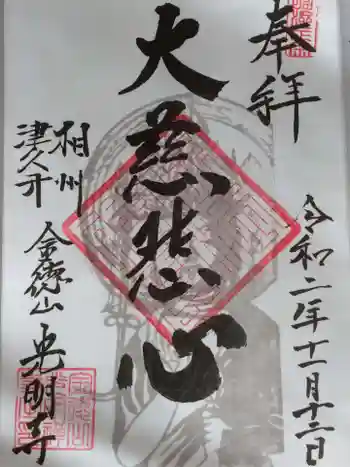 奉拝
令和二年十一月十二日
大慈悲心
相州
津久井
金徳山
光明寺